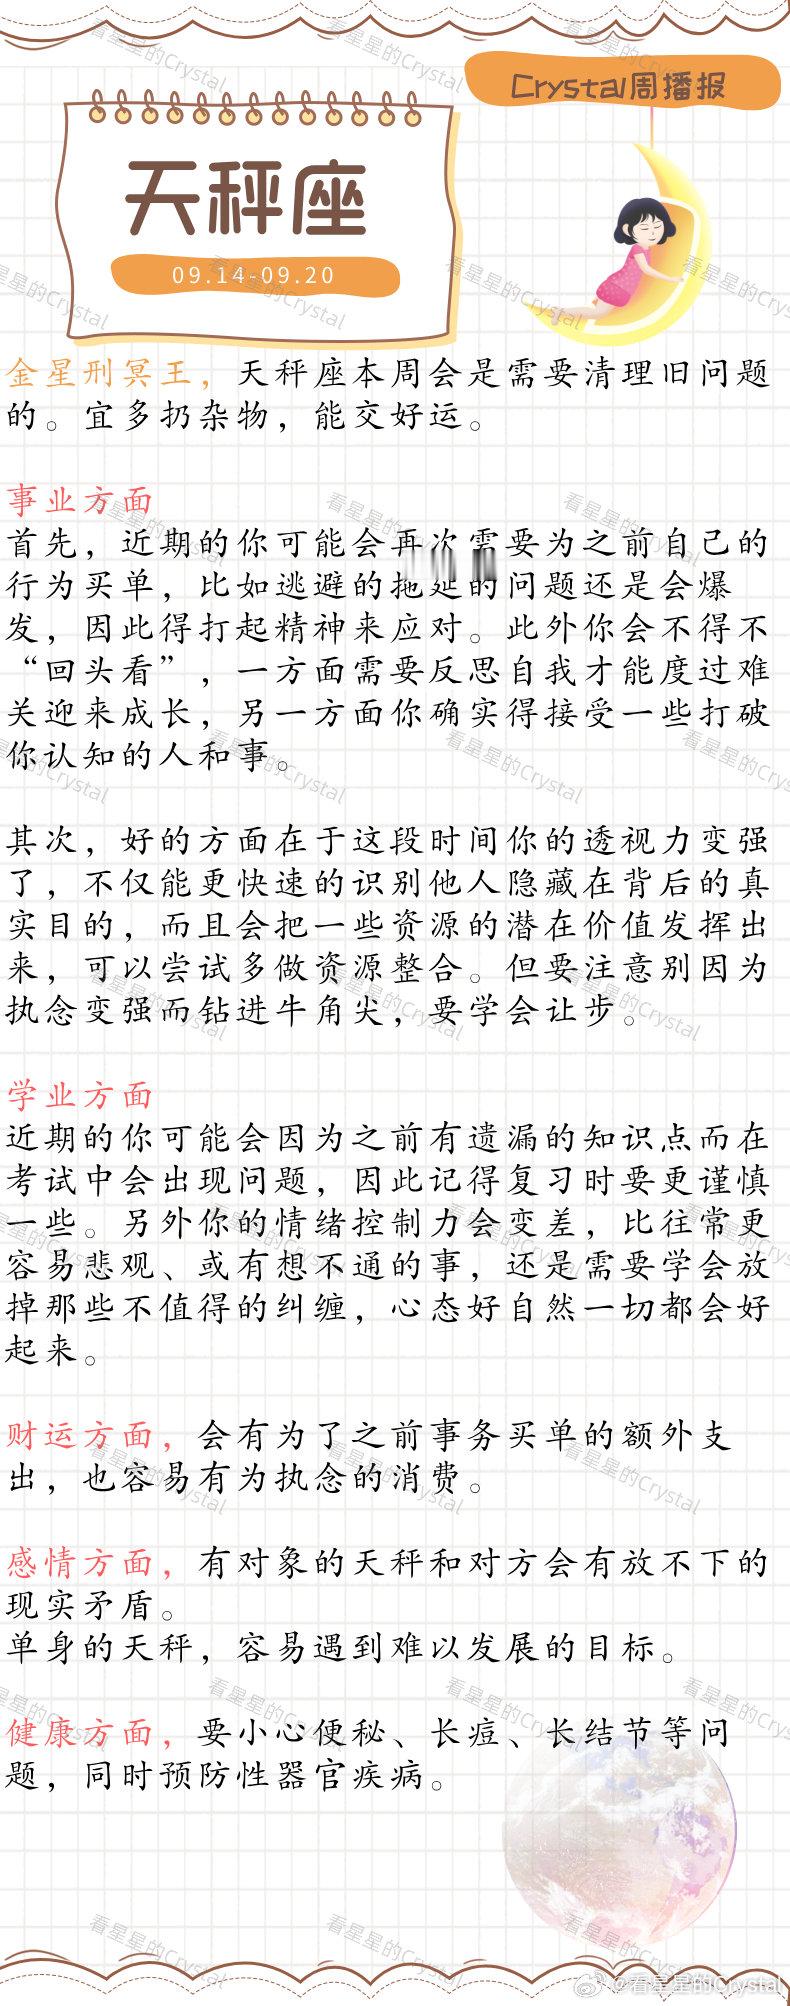 Crystal周播报
天秤座
09.14-09.20
金星刑冥王，天秤座本周会是需要清理旧问题
的。宜多扔杂物，能交好运。
事业方面
首先，近期的你可能会再次需要为之前自己的
行为买单，比如逃避的拖延的问题还是会爆
发，因此得打起精神来应对。此外你会不得不
“回头看”，一方面需要反思自我才能度过难
关迎来成长，另一方面你确实得接受一些打破
你认知的人和事。
其次，好的方面在于这段时间你的透视力变强
了，不仅能更快速的识别他人隐藏在背后的真
实目的，而且会把一些资源的潜在价值发挥出
来，可以尝试多做资源整合。但要注意别因为
执念变强而钻进牛角尖，要学会让步。
学业方面
近期的你可能会因为之前有遗漏的知识点而在
考试中会出现问题，因此记得复习时要更谨慎
一些。另外你的情绪控制力会变差，比往常更
容易悲观、或有想不通的事，还是需要学会放
掉那些不值得的纠缠，心态好自然一切都会好
起来。
财运方面，会有为了之前事务买单的额外支
出，也容易有为执念的消费。
感情方面，有对象的天秤和对方会有放不下的
现实矛盾。
单身的天秤，容易遇到难以发展的目标。
健康方面，要小心便秘、长痘、长结节等问
题，同时预防性器官疾病。
@看星星的Crystal